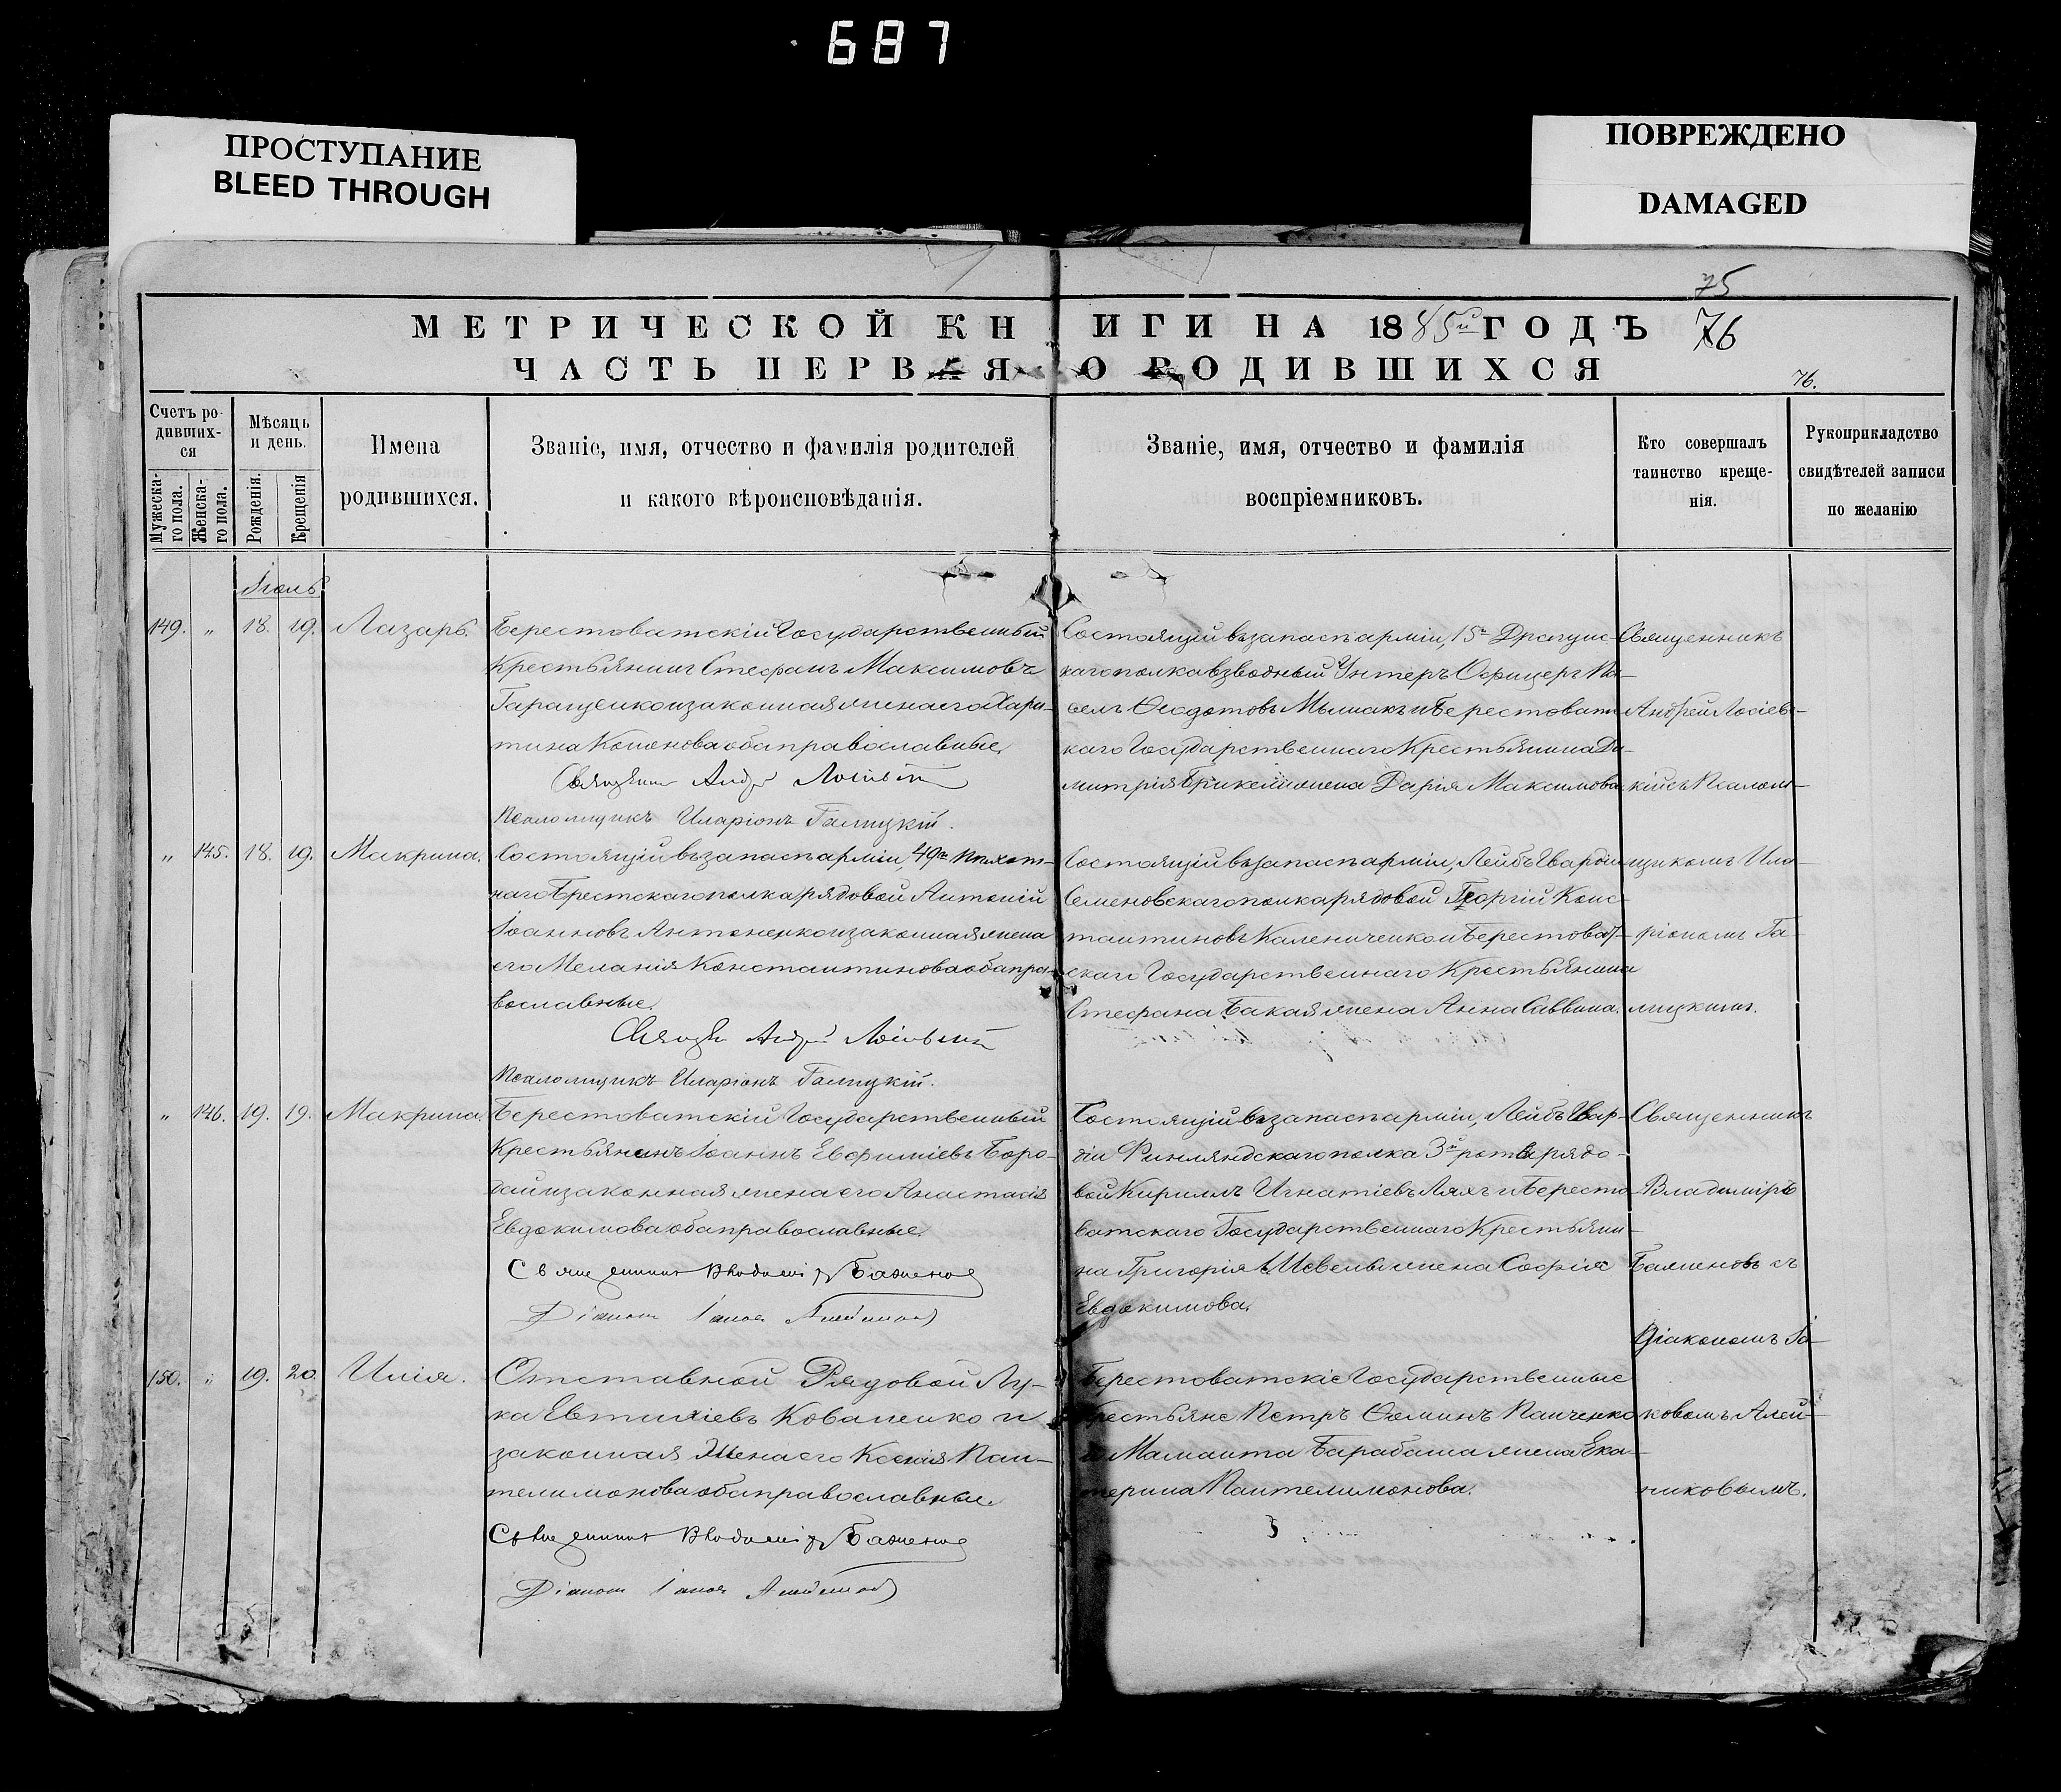 687
ПРОСТУПАНИЕ
BLEED THROUGH
ПОВРЕЖДЕНО
DAMAGED
75
МЕТРИЧЕСКОЙ КНИГИ НА 1885й ГОДЪ
76
ЧАСТЬ ПЕРВАЯ О РОДИВШИХСЯ
76.
Счетъ ро-
дивших-
ся
Мужеска-
го пола.
Женска-
го пола.
Мѣсяцъ
и день.
Рожденія.
Крещенія
Имена
родившихся.
Званіе, имя, отчество и фамилія родителей
и какого вѣроисповѣданія.
Званіе, имя, отчество и фамилія
воспріемниковъ.
Кто совершалъ
таинство креще-
нія.
Рукоприкладство
свидѣтелей записи
по желанію
Іюль
149. " 18. 19. Лазарь.
Берестоватскій Государственный
Крестьянинъ Стефанъ Максимовъ
Геращенко и законная жена его Хари-
тина Кононова оба православные.
Священникъ Андрей Лосіевскій
Псаломщикъ Иларіонъ Галицкій.
Состоящій въ запасѣ арміи, 15го Драгунс-
каго полка взводный Унтеръ Офицеръ Па-
велъ Ѳеодотовъ Мышакъ и Берестоват-
скаго Государственнаго Крестьянина Ди-
митрія жена Дарія Максимова
Священникъ
Андрей Лосіевс-
кій съ Псалом-
" 145. 18. 19. Макрина.
Состоящій въ запасѣ арміи, 49го Пѣхот-
наго Брестскаго полка рядовой Антоній
Іоанновъ Антоненко и законная жена
его Меланія Константинова оба пра-
вославные.
Священникъ Андрей Лосіевскій
Псаломщикъ Иларіонъ Галицкій.
Состоящій въ запасѣ арміи, Лейбъ Гвардіи
Семеновскаго полка рядовой Георгій Конс-
тантиновъ Калениченко и Берестоват-
скаго Государственнаго Крестьянина
Стефана Бакая жена Анна Саввина.
щикомъ Ила-
ріономъ Га-
лицкимъ.
" 146. 19. 19. Макрина.
Берестоватскій Государственный
Крестьянинъ Іоаннъ Евфиміевъ Боро-
дай и законная жена его Анастасія
Евдокимова оба православные.
Священникъ Владиміръ Баженовъ
Діаконъ Іаковъ Алейниковъ
Состоящій въ запасѣ арміи, Лейбъ Гвар-
діи Финляндскаго полка 3й роты рядо-
вой Кириллъ Игнатіевъ Ляхъ и Бересто-
ватскаго Государственнаго Крестьяни-
на Григорія Шевеля жена Софія
Евдокимова.
Священникъ
Владиміръ
Баженовъ съ
Діакономъ Іа-
150. " 19. 20. Илія.
Отставной Рядовой Лу-
ка Евтихіевъ Коваленко и
законная Жена его Ксенія Пан-
телимонова оба православные.
Священникъ Владиміръ Баженовъ
Діаконъ Іаковъ Алейниковъ
Берестоватскіе Государственные
Крестьяне Петръ Ѳоминъ Панченко
и Маманта Барабаша жена Ека-
терина Пантелимонова.
ковомъ Алей-
никовымъ.